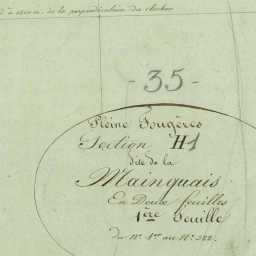 de la perpendiculaire du clocher
- 35 -
Pleine Fougères
Section H1
dite de la
Mainguais
En Deux feuilles
1ère Feuille
du N° 1er au N° 322.